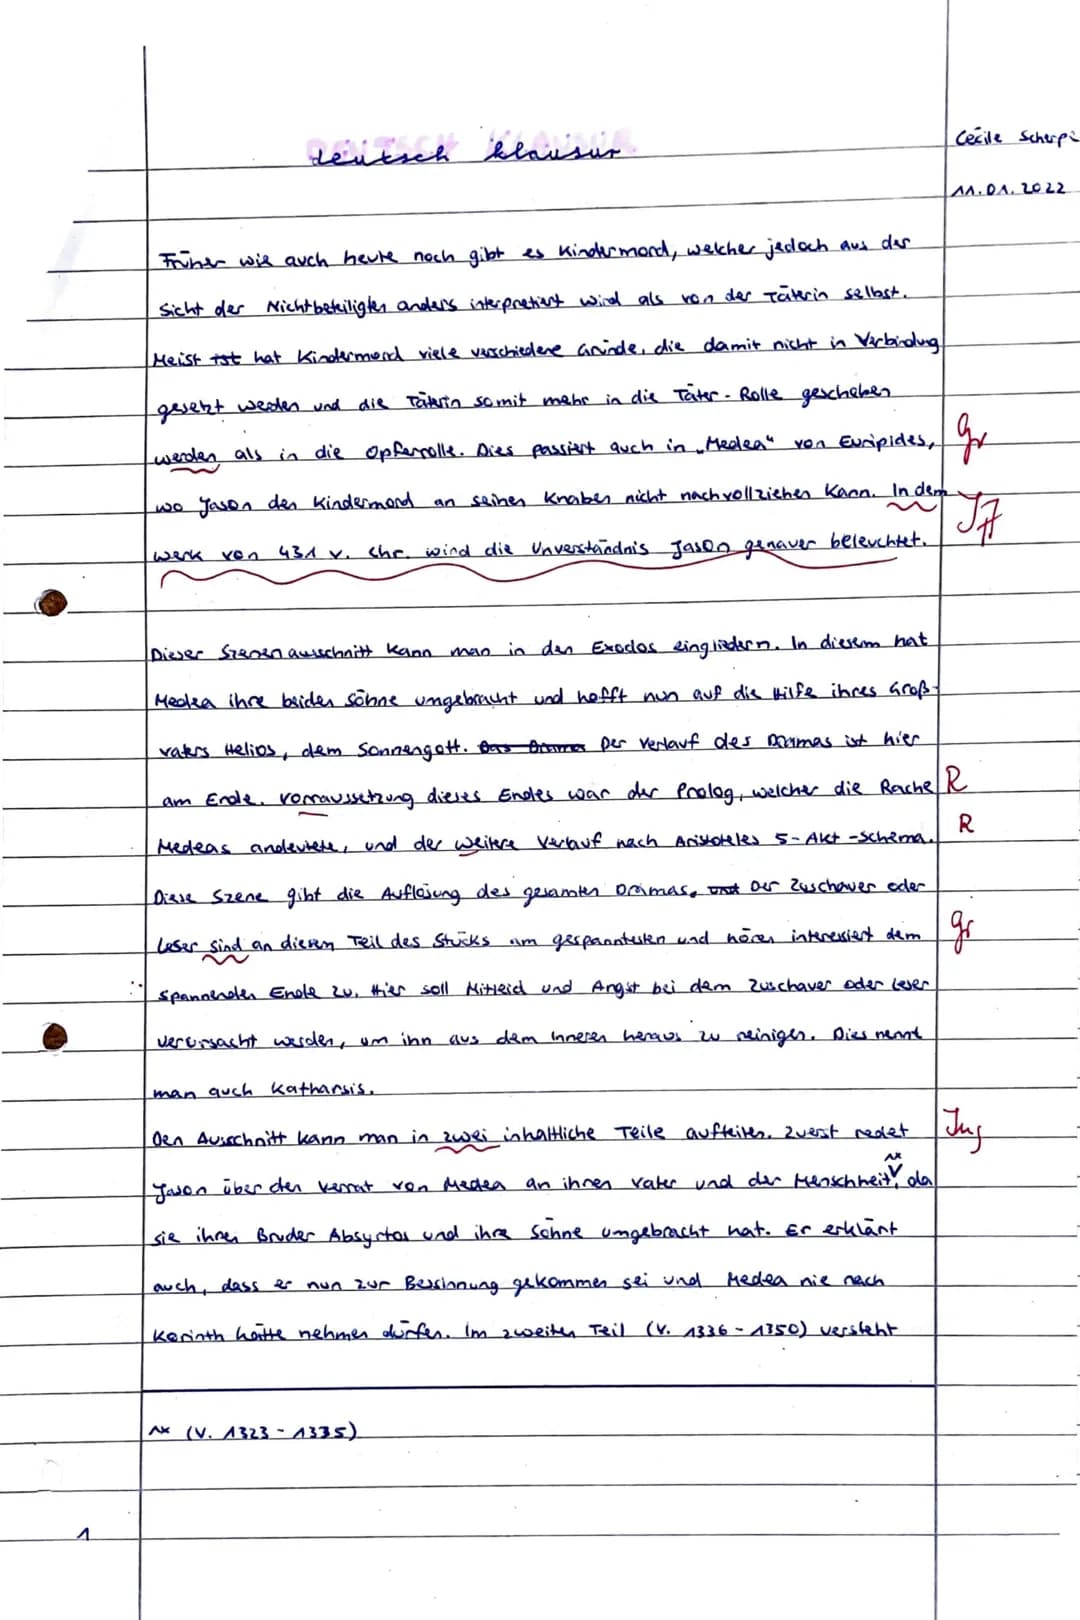 Deutsch Klausur
Cécile Scherpi
11.01.2022
Früher wie auch heute noch gibt es Kindermord, welcher jedoch aus der
Sicht der Nichtbeteiligten anders interpretiert wird als von der Täterin selbst.
Meist ist hat Kindermord viele verschiedene Gründe, die damit nicht in Verbindung
gesetzt werden und die Täterin somit mehr in die Täter-Rolle geschoben
werden als in die Opferrolle. Dies passiert auch in „Medea“ von Euripides, gr
wo Jason den Kindermord an seinen Knaben nicht nachvollziehen kann. In dem
Werk von 431 v. Chr. wird die Unverständnis Jason genauer beleuchtet.
Dieser Szenenausschnitt kann man in den Exodos eingliedern. In diesem hat
Medea ihre beiden Söhne umgebracht und hofft nun auf die Hilfe ihres Groß-
vaters Helios, dem Sonnengott. Das Drama Der Verlauf des Dramas ist hier
am Ende. Vorraussetzung dieses Endes war der Prolog, welcher die Rache R
Medeas andeutete, und der weitere Verlauf nach Aristoteles 5-Akt-Schema. R
Diese Szene gibt die Auflösung des gesamten Dramas, und Der Zuschauer oder
Leser sind an diesem Teil des Stücks am gespanntesten und hören interessiert dem gr
spannenden Ende zu. Hier soll Mitleid und Angst bei dem Zuschauer oder Leser
verursacht werden, um ihn aus dem Inneren heraus zu reinigen. Dies nennt
man auch Katharsis.
Den Ausschnitt kann man in zwei inhaltliche Teile aufteilen. Zuerst redet
Jason über den Verrat von Medea an ihren Vater und der Menschheit *1, da
sie ihren Bruder Absyrtos und ihre Söhne umgebracht hat. Er erklärt
auch, dass er nun zur Bessinnung gekommen sei und Medea nie nach
Korinth hätte nehmen dürfen. Im zweiten Teil (V. 1336 - 1350) versteht
*1 (V. 1323 - 1335)
1